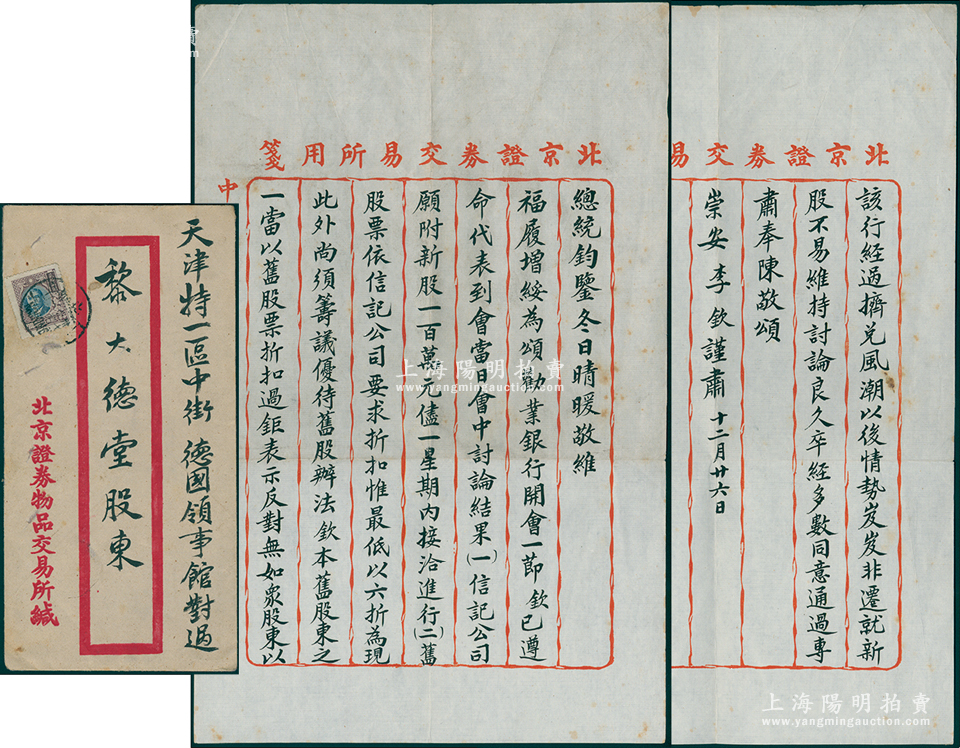 天津特一區中街德國領事館對過
黎大德堂股東
北京證券物品交易所緘
北京證券交易所用箋
中
總統鈞鑒冬日晴暖敬維
福履增綏為頌勸業銀行開會一節欽已遵
命代表到會當日會中討論結果(一)信記公司
願附新股一百萬元儘一星期內接洽進行(二)舊
股票依信記公司要求折扣惟最低以六折為現
此外尚須籌議優待舊股辦法欽本舊股東之
一當以舊股票折扣過鉅表示反對無如眾股東以
北京證券交易
該行經過擠兌風潮以後情勢岌岌非遷就新
股不易維持討論良久卒經多數同意通過專
肅奉陳敬頌
崇安 李欽謹肅 十二月廿六日
上海陽明拍賣
www.yangmingauction.com
上海陽明拍賣
www.yangmingauction.com